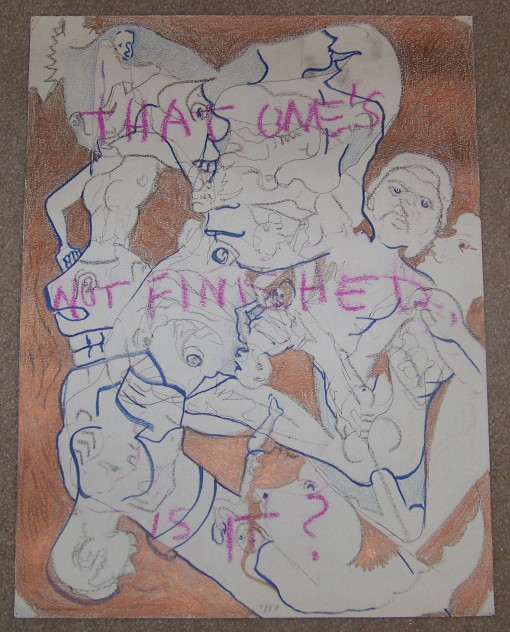 THAT ONE'S
NOT FINISHED,
IS IT?